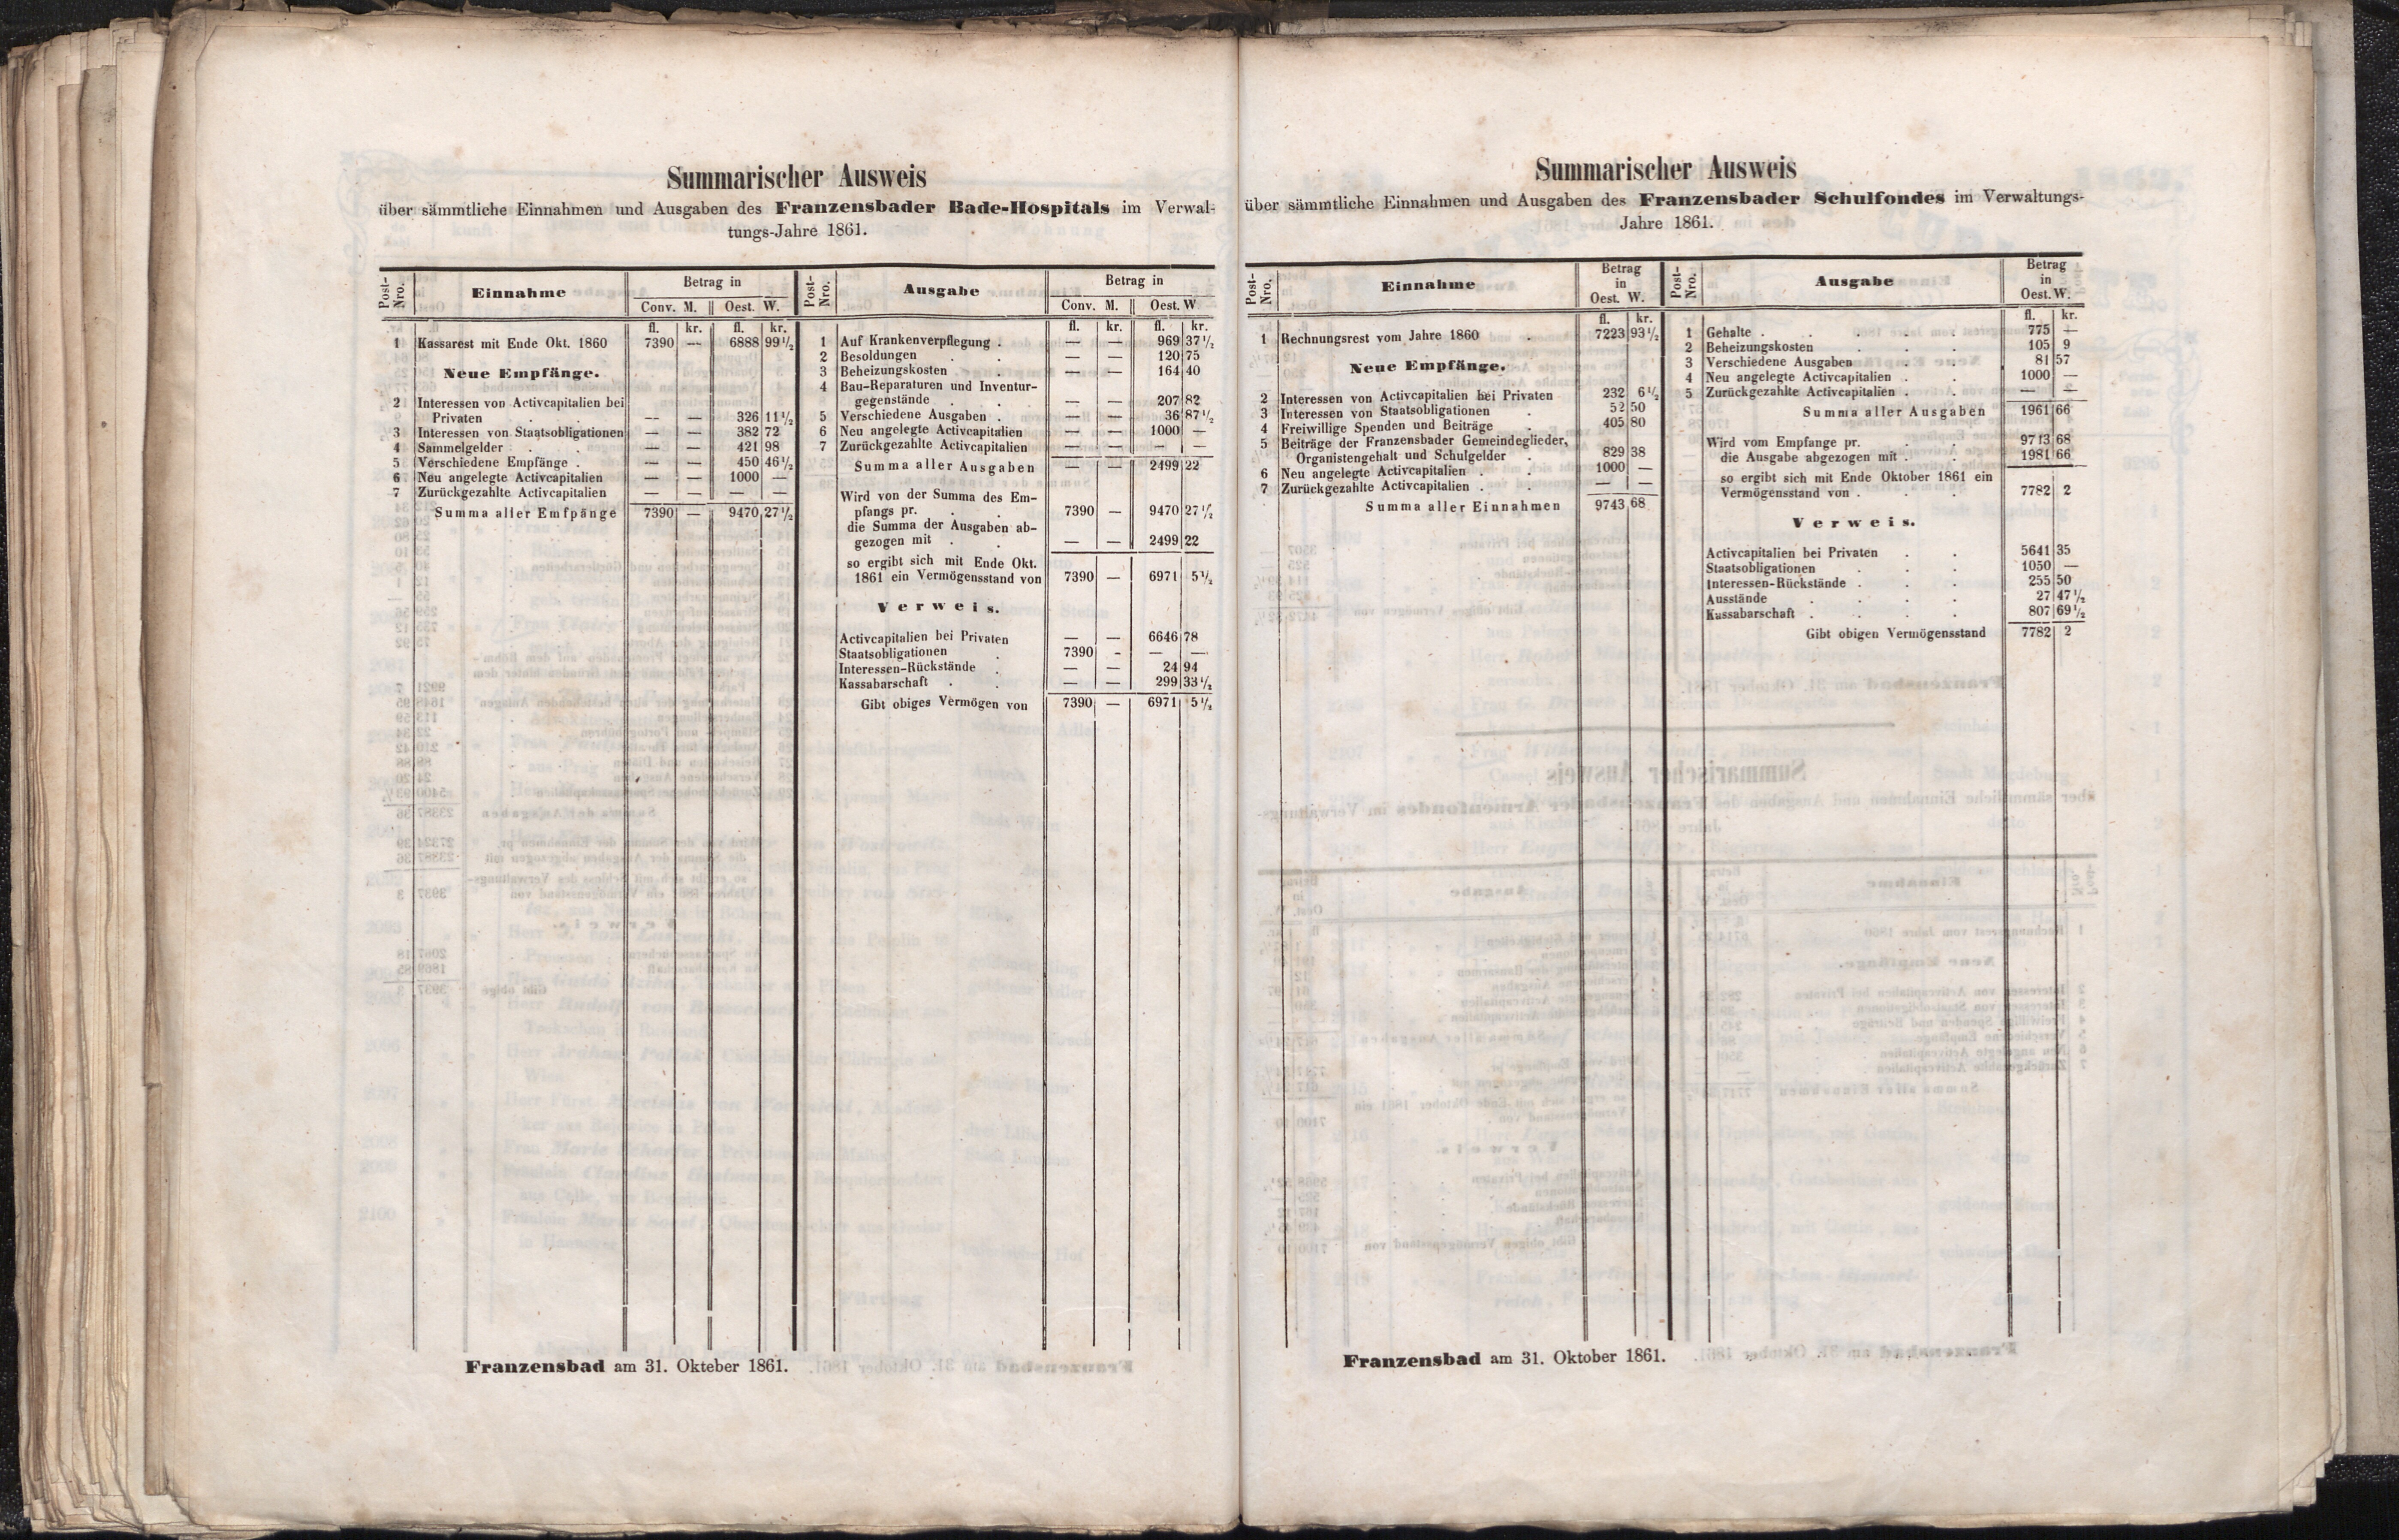 Summarischer Ausweis
über sämmtliche Einnahmen und Ausgaben des Franzensbader Bade-Hospitals im Verwal-
tungs-Jahre 1861.
Post-Nro. Einnahme Betrag in
Conv. M. Oest. W.
fl. kr. fl. kr.
1 Kassarest mit Ende Okt. 1860 7390 — 6888 99½
Neue Empfänge.
2 Interessen von Activcapitalien bei
Privaten . . — — 326 11½
3 Interessen von Staatsobligationen — — 382 72
4 Sammelgelder . . — — 421 98
5 Verschiedene Empfänge . — — 450 46½
6 Neu angelegte Activcapitalien — — 1000 —
7 Zurückgezahlte Activcapitalien — — — —
Summa aller Emfpänge 7390 — 9470 27½
Post-Nro. Ausgabe Betrag in
Conv. M. Oest. W
fl. kr. fl. kr.
1 Auf Krankenverpflegung . — — 969 37½
2 Besoldungen . . — — 120 75
3 Beheizungskosten . — — 164 40
4 Bau-Reparaturen und Inventur-
gegenstände . . — — 207 82
5 Verschiedene Ausgaben . — — 36 87½
6 Neu angelegte Activcapitalien — — 1000 —
7 Zurückgezahlte Activcapitalien — — — —
Summa aller Ausgaben — — 2499 22
Wird von der Summa des Em-
pfangs pr. . . 7390 — 9470 27½
die Summa der Ausgaben ab-
gezogen mit . . — — 2499 22
so ergibt sich mit Ende Okt.
1861 ein Vermögensstand von 7390 — 6971 5½
Verweis.
Activcapitalien bei Privaten — — 6646 78
Staatsobligationen . 7390 - — —
Interessen-Rückstände . — — 24 94
Kassabarschaft . . — — 299 33½
Gibt obiges Vermögen von 7390 — 6971 5½
Franzensbad am 31. Okteber 1861.
Summarischer Ausweis
über sämmtliche Einnahmen und Ausgaben des Franzensbader Schulfondes im Verwaltungs-
Jahre 1861.
Post-Nro. Einnahme Betrag
in
Oest. W.
fl. kr.
1 Rechnungsrest vom Jahre 1860 . 7223 93½
Neue Empfänge.
2 Interessen von Activcapitalien bei Privaten 232 6½
3 Interessen von Staatsobligationen . 52 50
4 Freiwillige Spenden und Beiträge . 405 80
5 Beiträge der Franzensbader Gemeindeglieder,
Organistengehalt und Schulgelder . 829 38
6 Neu angelegte Activcapitalien . . 1000 —
7 Zurückgezahlte Activcapitalien . . — —
Summa aller Einnahmen 9743 68
Post-Nro. Ausgabe Betrag
in
Oest. W.
fl. kr.
1 Gehalte . . . . . 775 —
2 Beheizungskosten . . . 105 9
3 Verschiedene Ausgaben . . 81 57
4 Neu angelegte Activcapitalien . . 1000 —
5 Zurückgezahlte Activcapitalien . . — —
Summa aller Ausgaben 1961 66
Wird vom Empfange pr. . . 9743 68
die Ausgabe abgezogen mit . . 1981 66
so ergibt sich mit Ende Oktober 1861 ein
Vermögensstand von . . . 7782 2
Verweis.
Activcapitalien bei Privaten . . 5641 35
Staatsobligationen . . . 1050 —
Interessen-Rückstände . . . 255 50
Ausstände . . . . 27 47½
Kassabarschaft . . . . 807 69½
Gibt obigen Vermögensstand 7782 2
Franzensbad am 31. Oktober 1861.